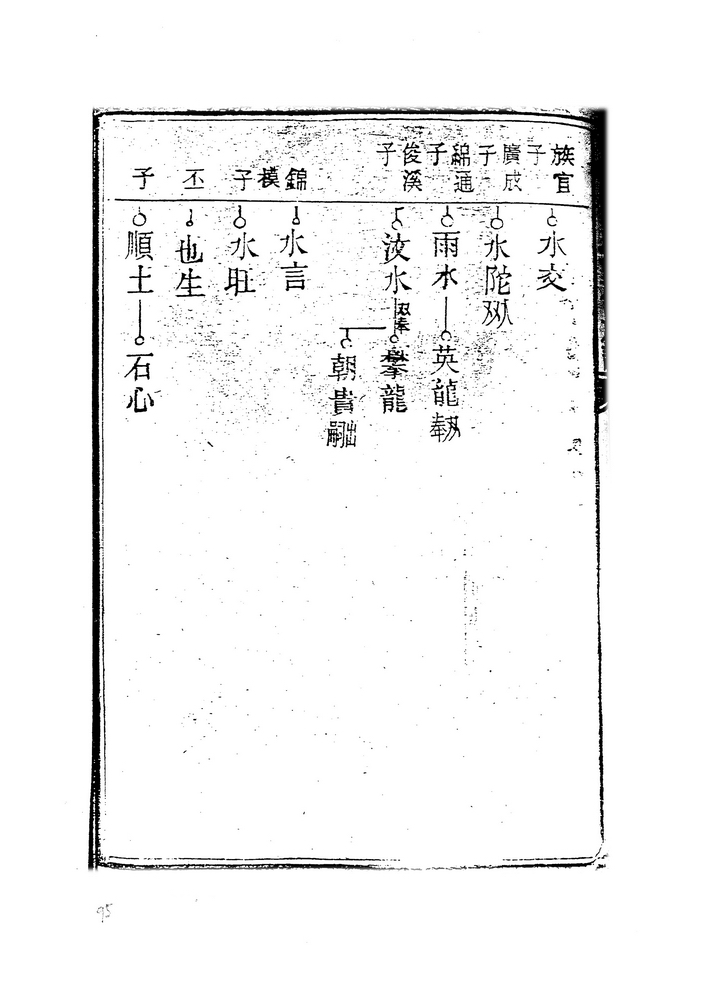 族官子
水交
廣成子
水陀
綿通子
雨水
英龍
俊溪子
汝水
双奉
攀龍
朝貴
出嗣
錦模
水言
子
水
丕
也生
子
順土
石心
95